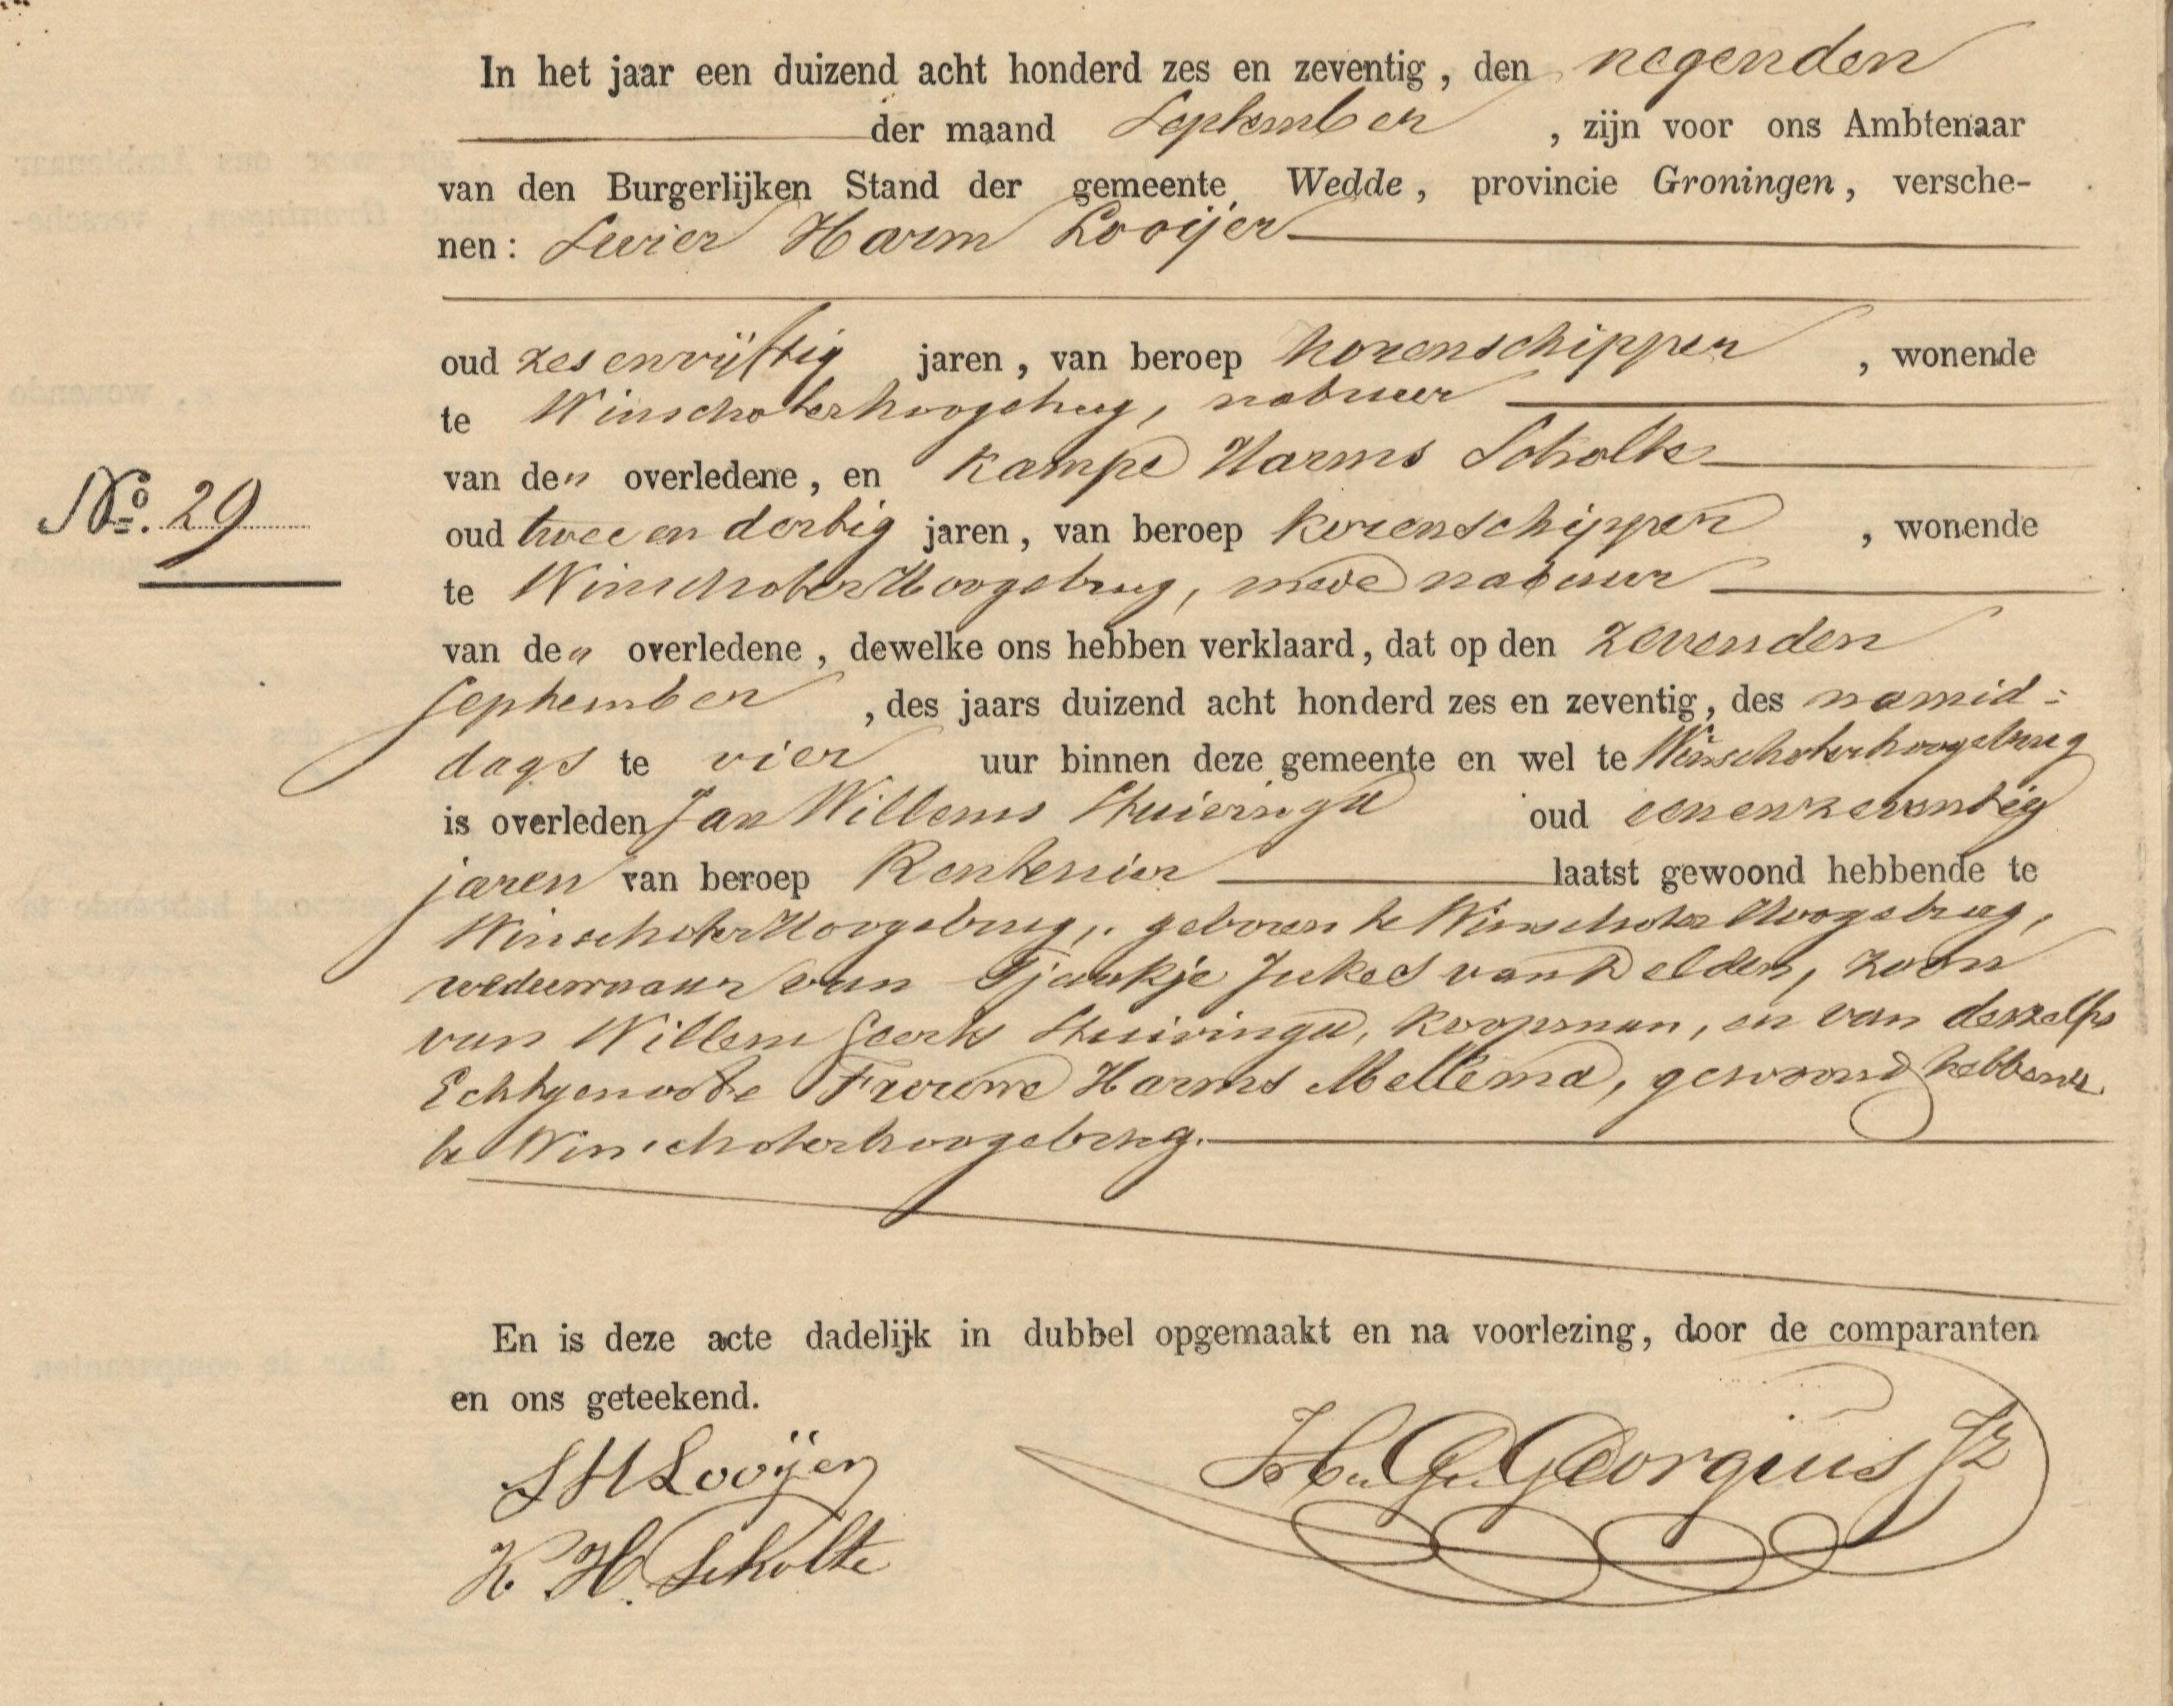 In het jaar een duizend acht honderd zes en zeventig, den negenden
der maand September, zijn voor ons Ambtenaar
van den Burgerlijken Stand der gemeente Wedde, provincie Groningen, versche-
nen: Luvier Harm Looijer
oud zesenvijftig jaren, van beroep korenschipper, wonende
te Winschoterhoogebrug, nabuur
van den overledene, en Kampe Harms Scholte
No. 29
oud twee en dertig jaren, van beroep korenschipper, wonende
te WinschoterHoogebrug, mede nabuur
van den overledene, dewelke ons hebben verklaard, dat op den zevenden
September, des jaars duizend acht honderd zes en zeventig, des namid-
dags te vier uur binnen deze gemeente en wel te Winschoterhoogebrug
is overleden Jan Willems Stuivinga oud eenenzeventig
jaren van beroep Rentenier laatst gewoond hebbende te
WinschoterHoogebrug, geboren te Winschoter Hoogebrug,
weduwnaar van Tjaakje Jukes van Delden, zoon
van Willem Geerts Stuivinga, koopman, en van deszelfs
Echtgenoote Frouwe Harms Mellema, gewoond hebbende
te Winschoterhoogebrug.
En is deze acte dadelijk in dubbel opgemaakt en na voorlezing, door de comparanten
en ons geteekend.
S H Looijer
G. Georgius Jz
K. H. Scholte